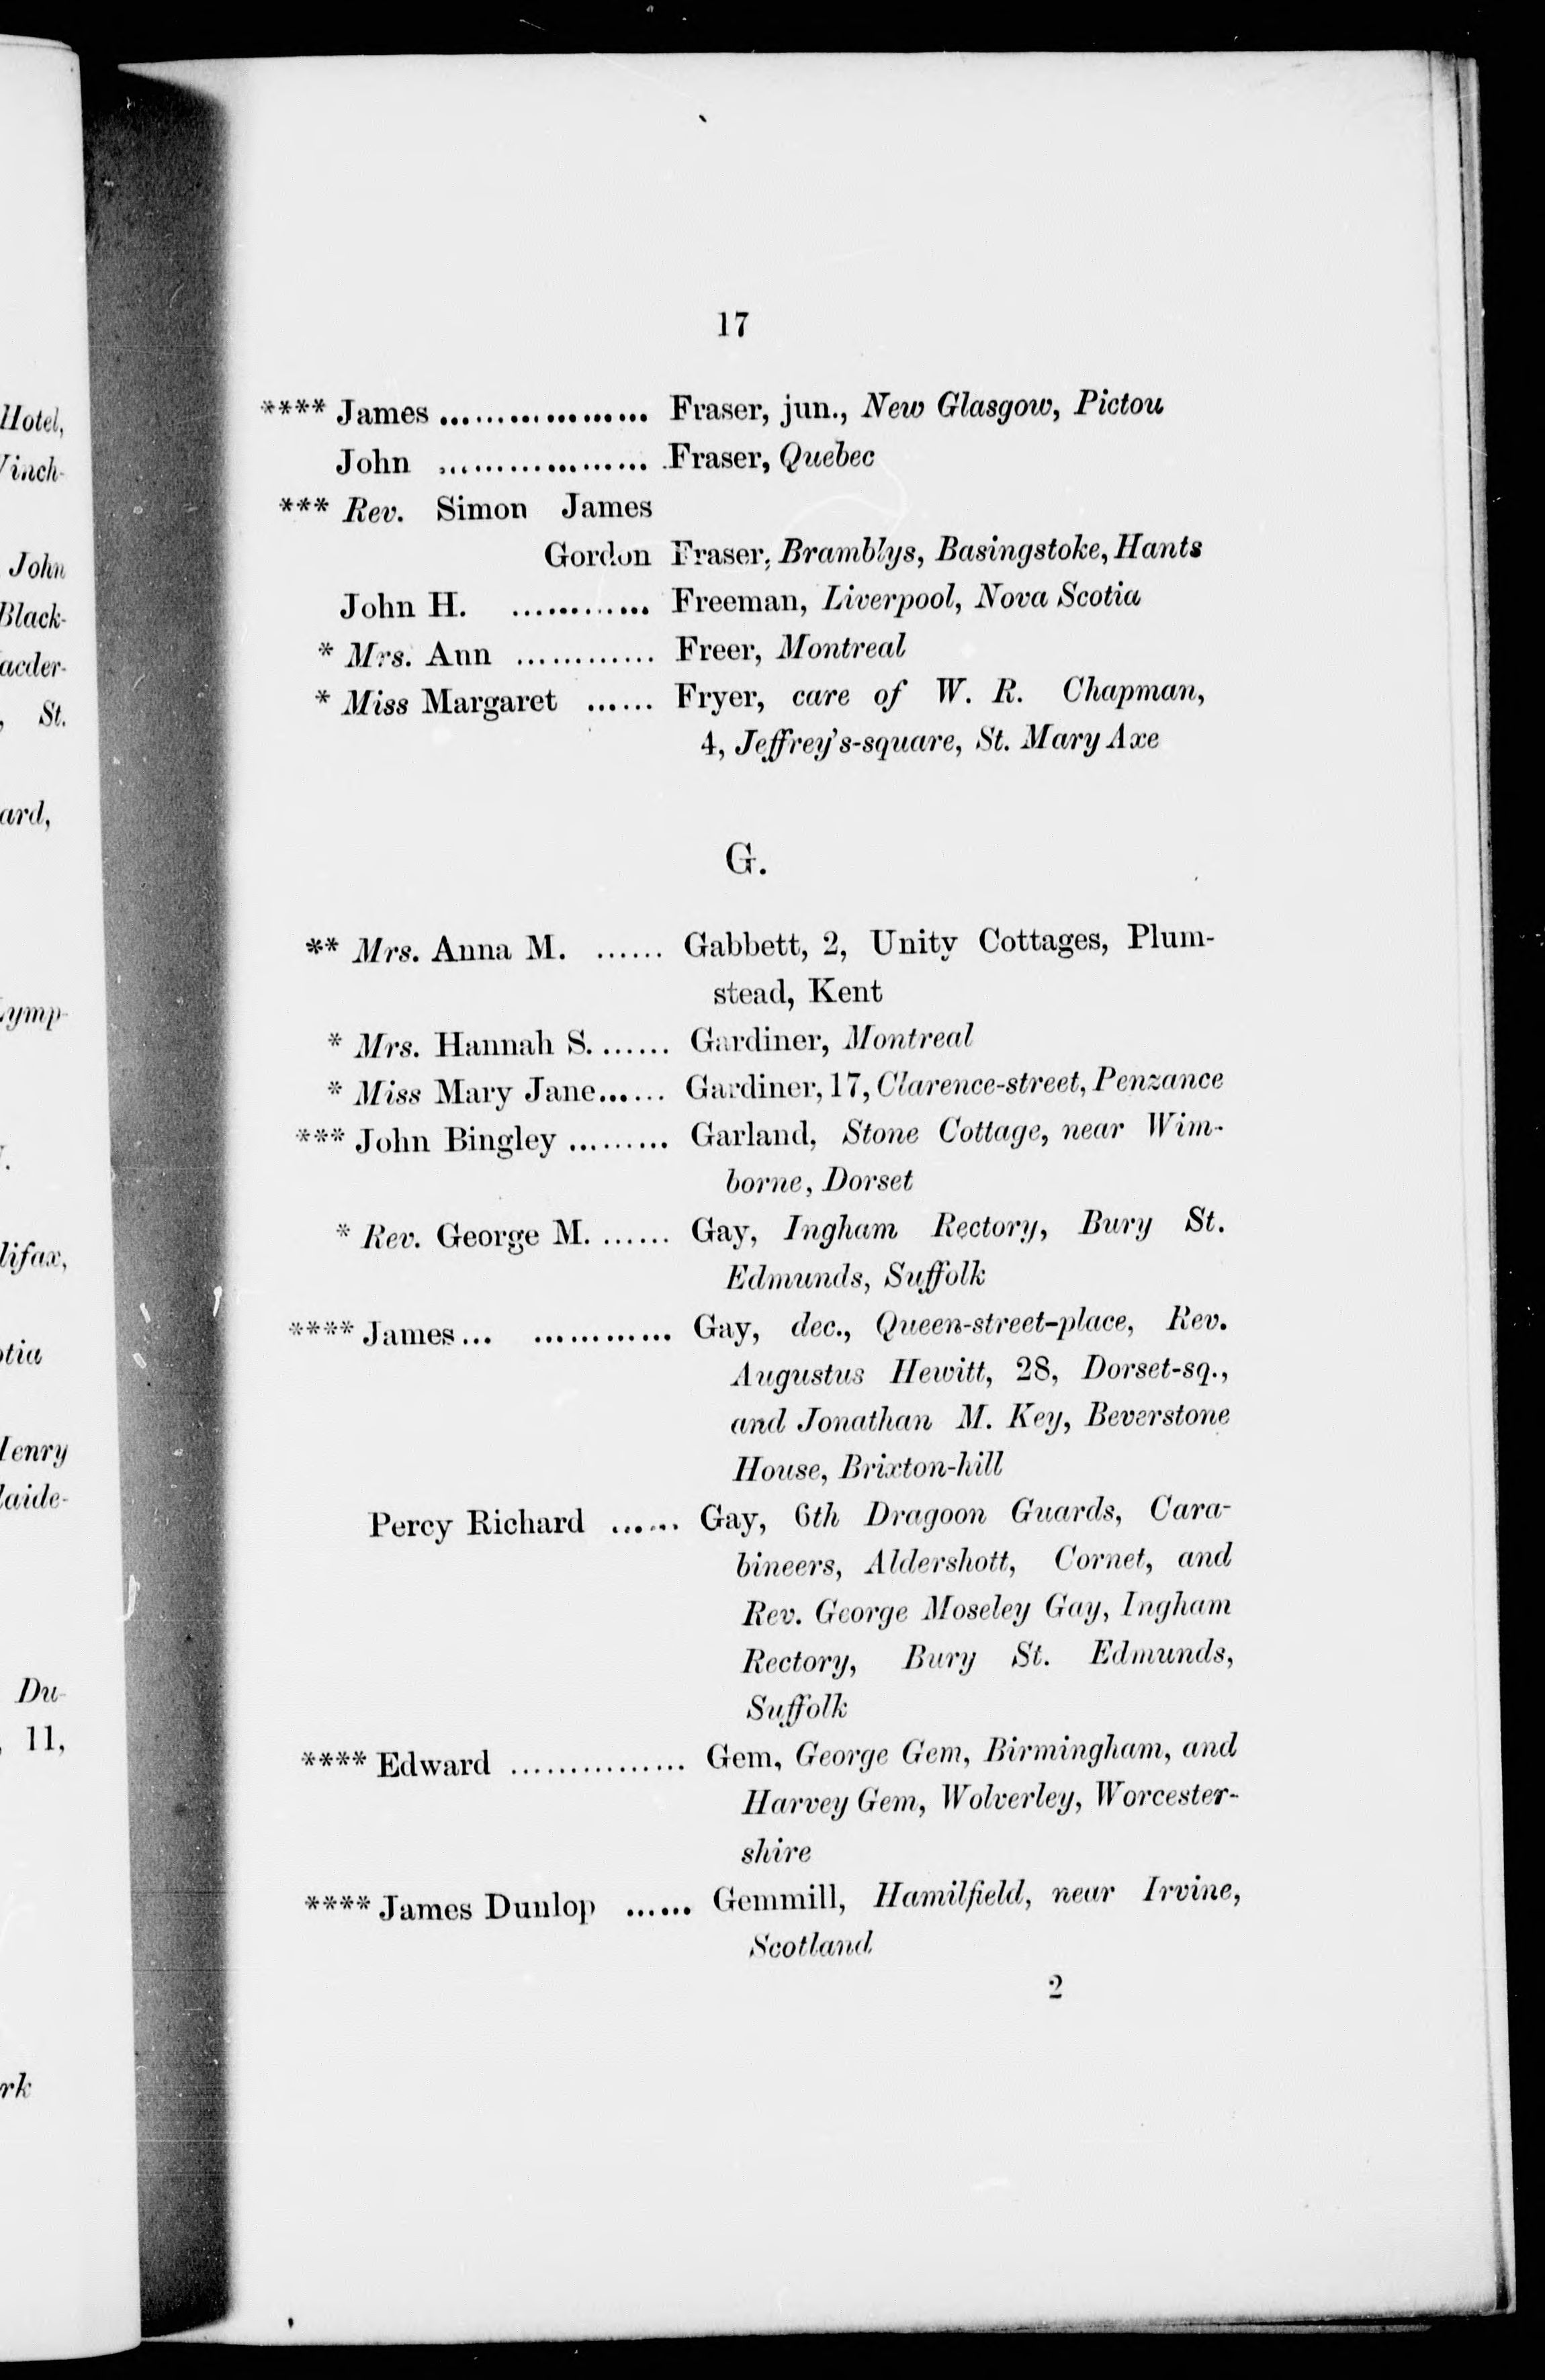 17
**** James .................. Fraser, jun., New Glasgow, Pictou
John .................. Fraser, Quebec
*** Rev. Simon James
Gordon Fraser, Bramblys, Basingstoke, Hants
John H. ............ Freeman, Liverpool, Nova Scotia
* Mrs. Ann ............ Freer, Montreal
* Miss Margaret ...... Fryer, care of W. R. Chapman,
4, Jeffrey's-square, St. Mary Axe
G.
** Mrs. Anna M. ...... Gabbett, 2, Unity Cottages, Plum-
stead, Kent
* Mrs. Hannah S. ...... Gardiner, Montreal
* Miss Mary Jane...... Gardiner, 17, Clarence-street, Penzance
*** John Bingley ......... Garland, Stone Cottage, near Wim-
borne, Dorset
* Rev. George M. ...... Gay, Ingham Rectory, Bury St.
Edmunds, Suffolk
**** James... ............ Gay, dec., Queen-street-place, Rev.
Augustus Hewitt, 28, Dorset-sq.,
and Jonathan M. Key, Beverstone
House, Brixton-hill
Percy Richard ...... Gay, 6th Dragoon Guards, Cara-
bineers, Aldershott, Cornet, and
Rev. George Moseley Gay, Ingham
Rectory, Bury St. Edmunds,
Suffolk
**** Edward ............... Gem, George Gem, Birmingham, and
Harvey Gem, Wolverley, Worcester-
shire
**** James Dunlop ...... Gemmill, Hamilfield, near Irvine,
Scotland
2
Hotel,
John
Black-
St.
ard,
lifax,
Du-
11,